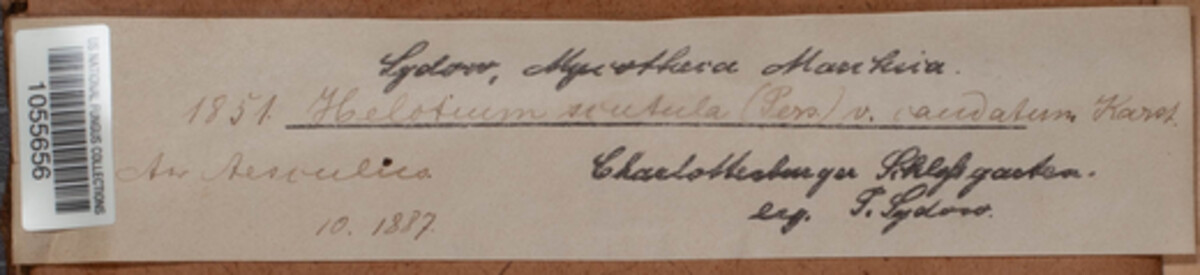 Sydow, Mycotheca Marchica.
1851. Helotium scutula (Pers.) v. caudatum Karst.
An Aesculus
Charlottenburger Schloßgarten.
10. 1887.
leg. P. Sydow.
US NATIONAL FUNGUS COLLECTIONS
1055656